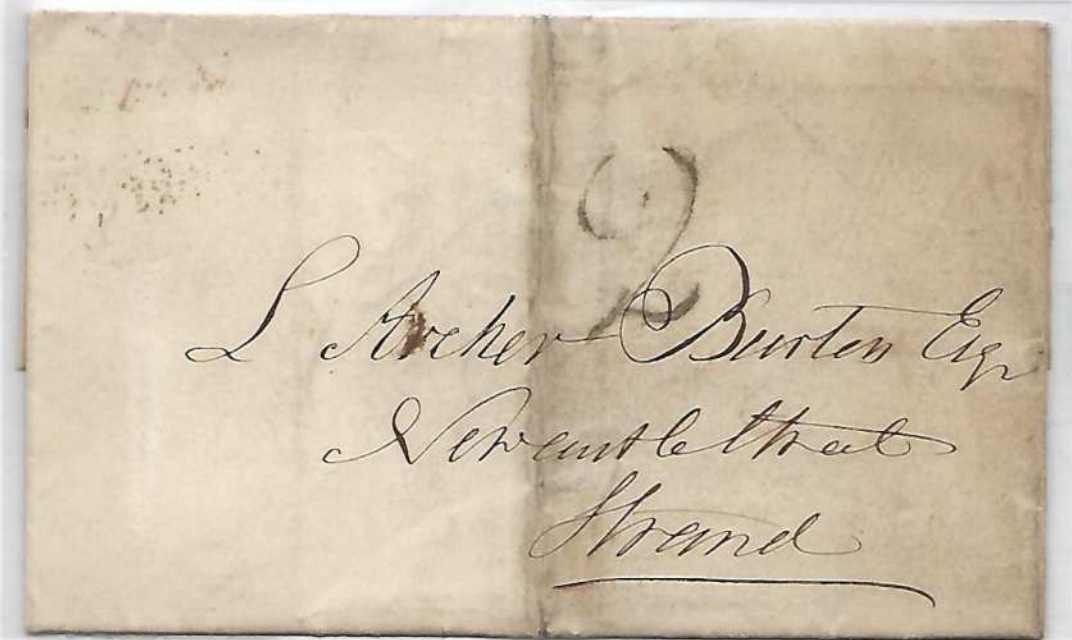 2
L Archer Burton Esqr
Newcastle Street
Strand